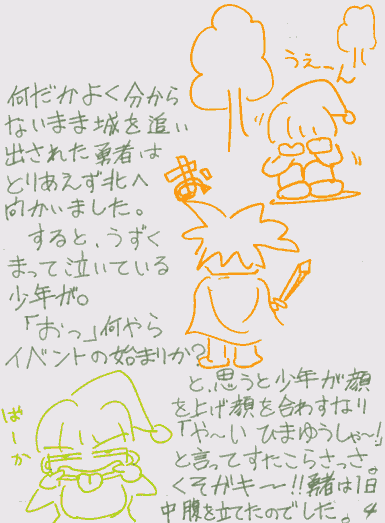 何だかよく分から
ないまま城を追い
出された勇者は
とりあえず北へ
向かいました。
すると、うずく
まって泣いている
少年が。
「おっ」何やら
イベントの始まりか?
うえーん
お
と、思うと少年が顔
を上げ顔を合わすなり
「や〜い ひまゆうしゃ〜!」
と言ってすたこらさっさ。
くそがキー!!勇者は1日
中腹を立てたのでした。4
ばーか